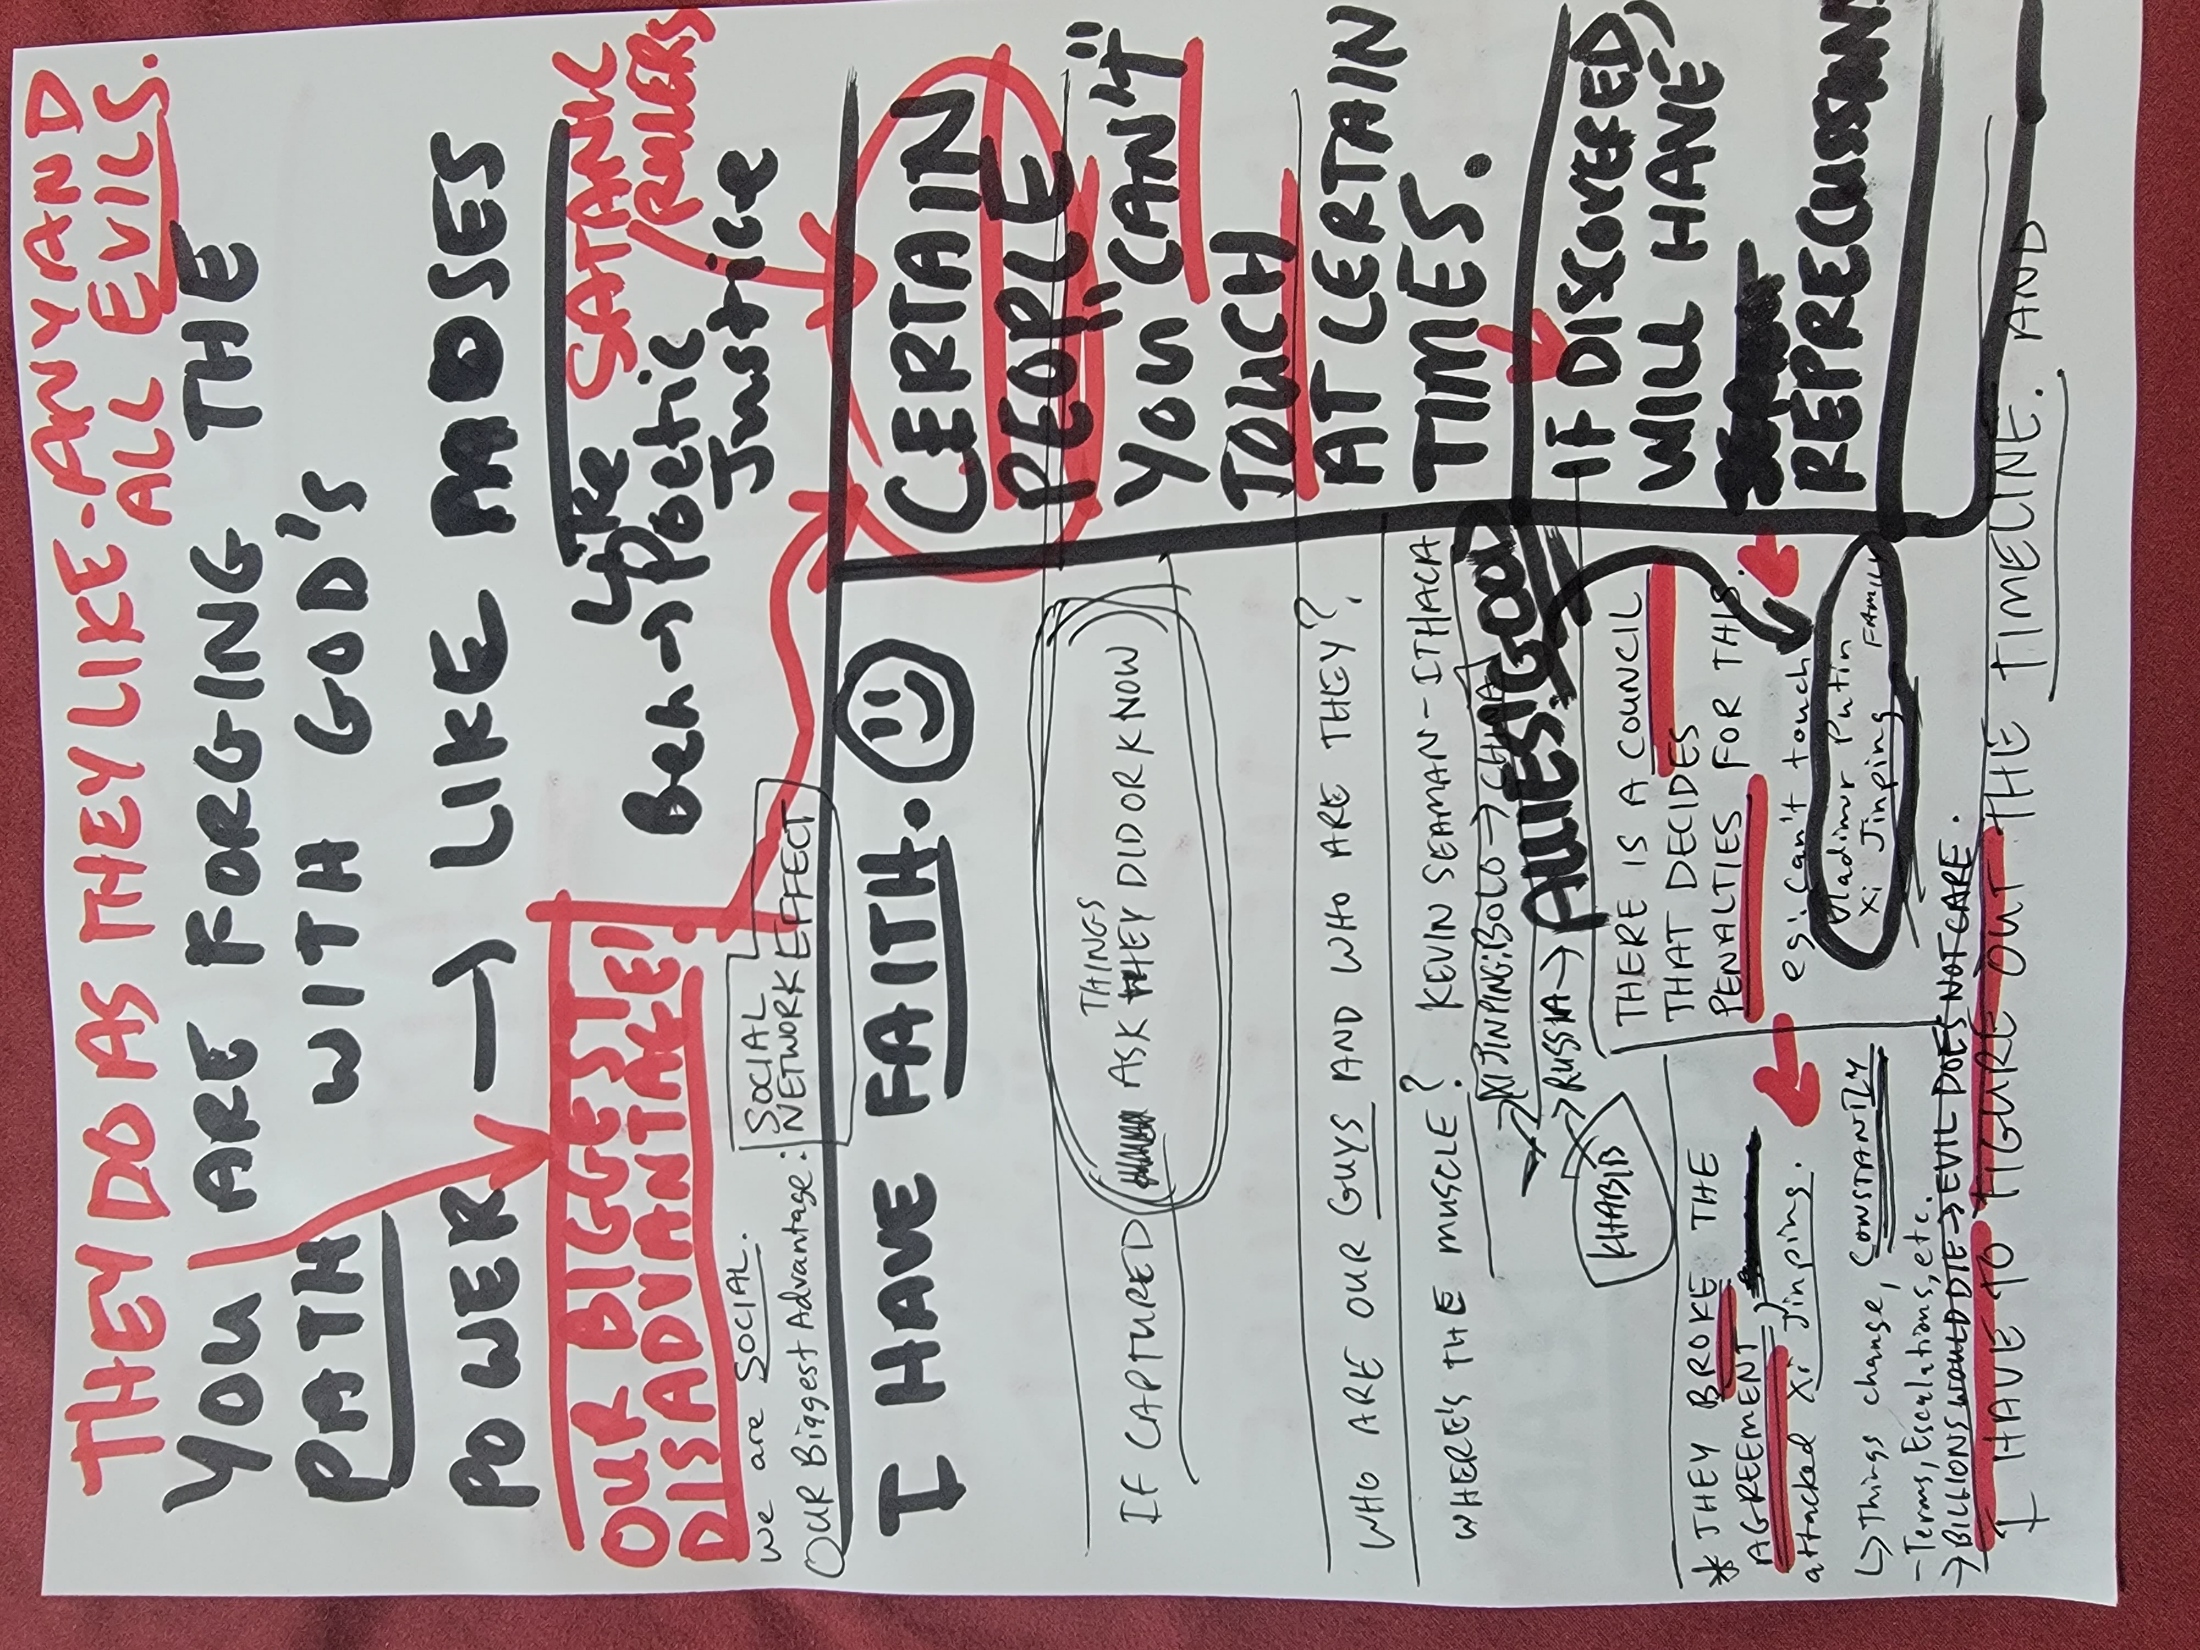 THEY DO AS THEY LIKE - ANY AND
ALL EVILS.
YOU ARE FORGING THE
PATH WITH GOD'S
POWER → LIKE MOSES
OUR BIGGEST
DISADVANTAGE!
Like
Ben → Poetic
Justice
SATANIC
RULERS
We are SOCIAL.
OUR Biggest Advantage:
SOCIAL
NETWORK EFFECT
I HAVE FAITH.
CERTAIN
PEOPLE
YOU "CAN'T"
TOUCH
AT CERTAIN
TIMES.
IF CAPTURED
THINGS
ASK THEY DID OR KNOW
WHO ARE OUR GUYS AND WHO ARE THEY?
WHERE'S THE MUSCLE? KEVIN SEAMAN - ITHACA
XI JINPING: BOLO → CHINA
RUSSIA → ALLIES! GOOD
KHABIB
IF DISCOVERED,
WILL HAVE
REPRECUSSIONS
THERE IS A COUNCIL
THAT DECIDES
PENALTIES FOR THIS.
eg: Can't touch
Vladimir Putin
Xi Jinping FAMILY
* THEY BROKE THE
AGREEMENT,
attacked Xi Jinping.
↳ Things change, CONSTANTLY
- Terms, Escalations, etc.
→ BILLIONS WOULD DIE → EVIL DOES NOT CARE.
I HAVE TO FIGURE OUT THE TIMELINE. AND